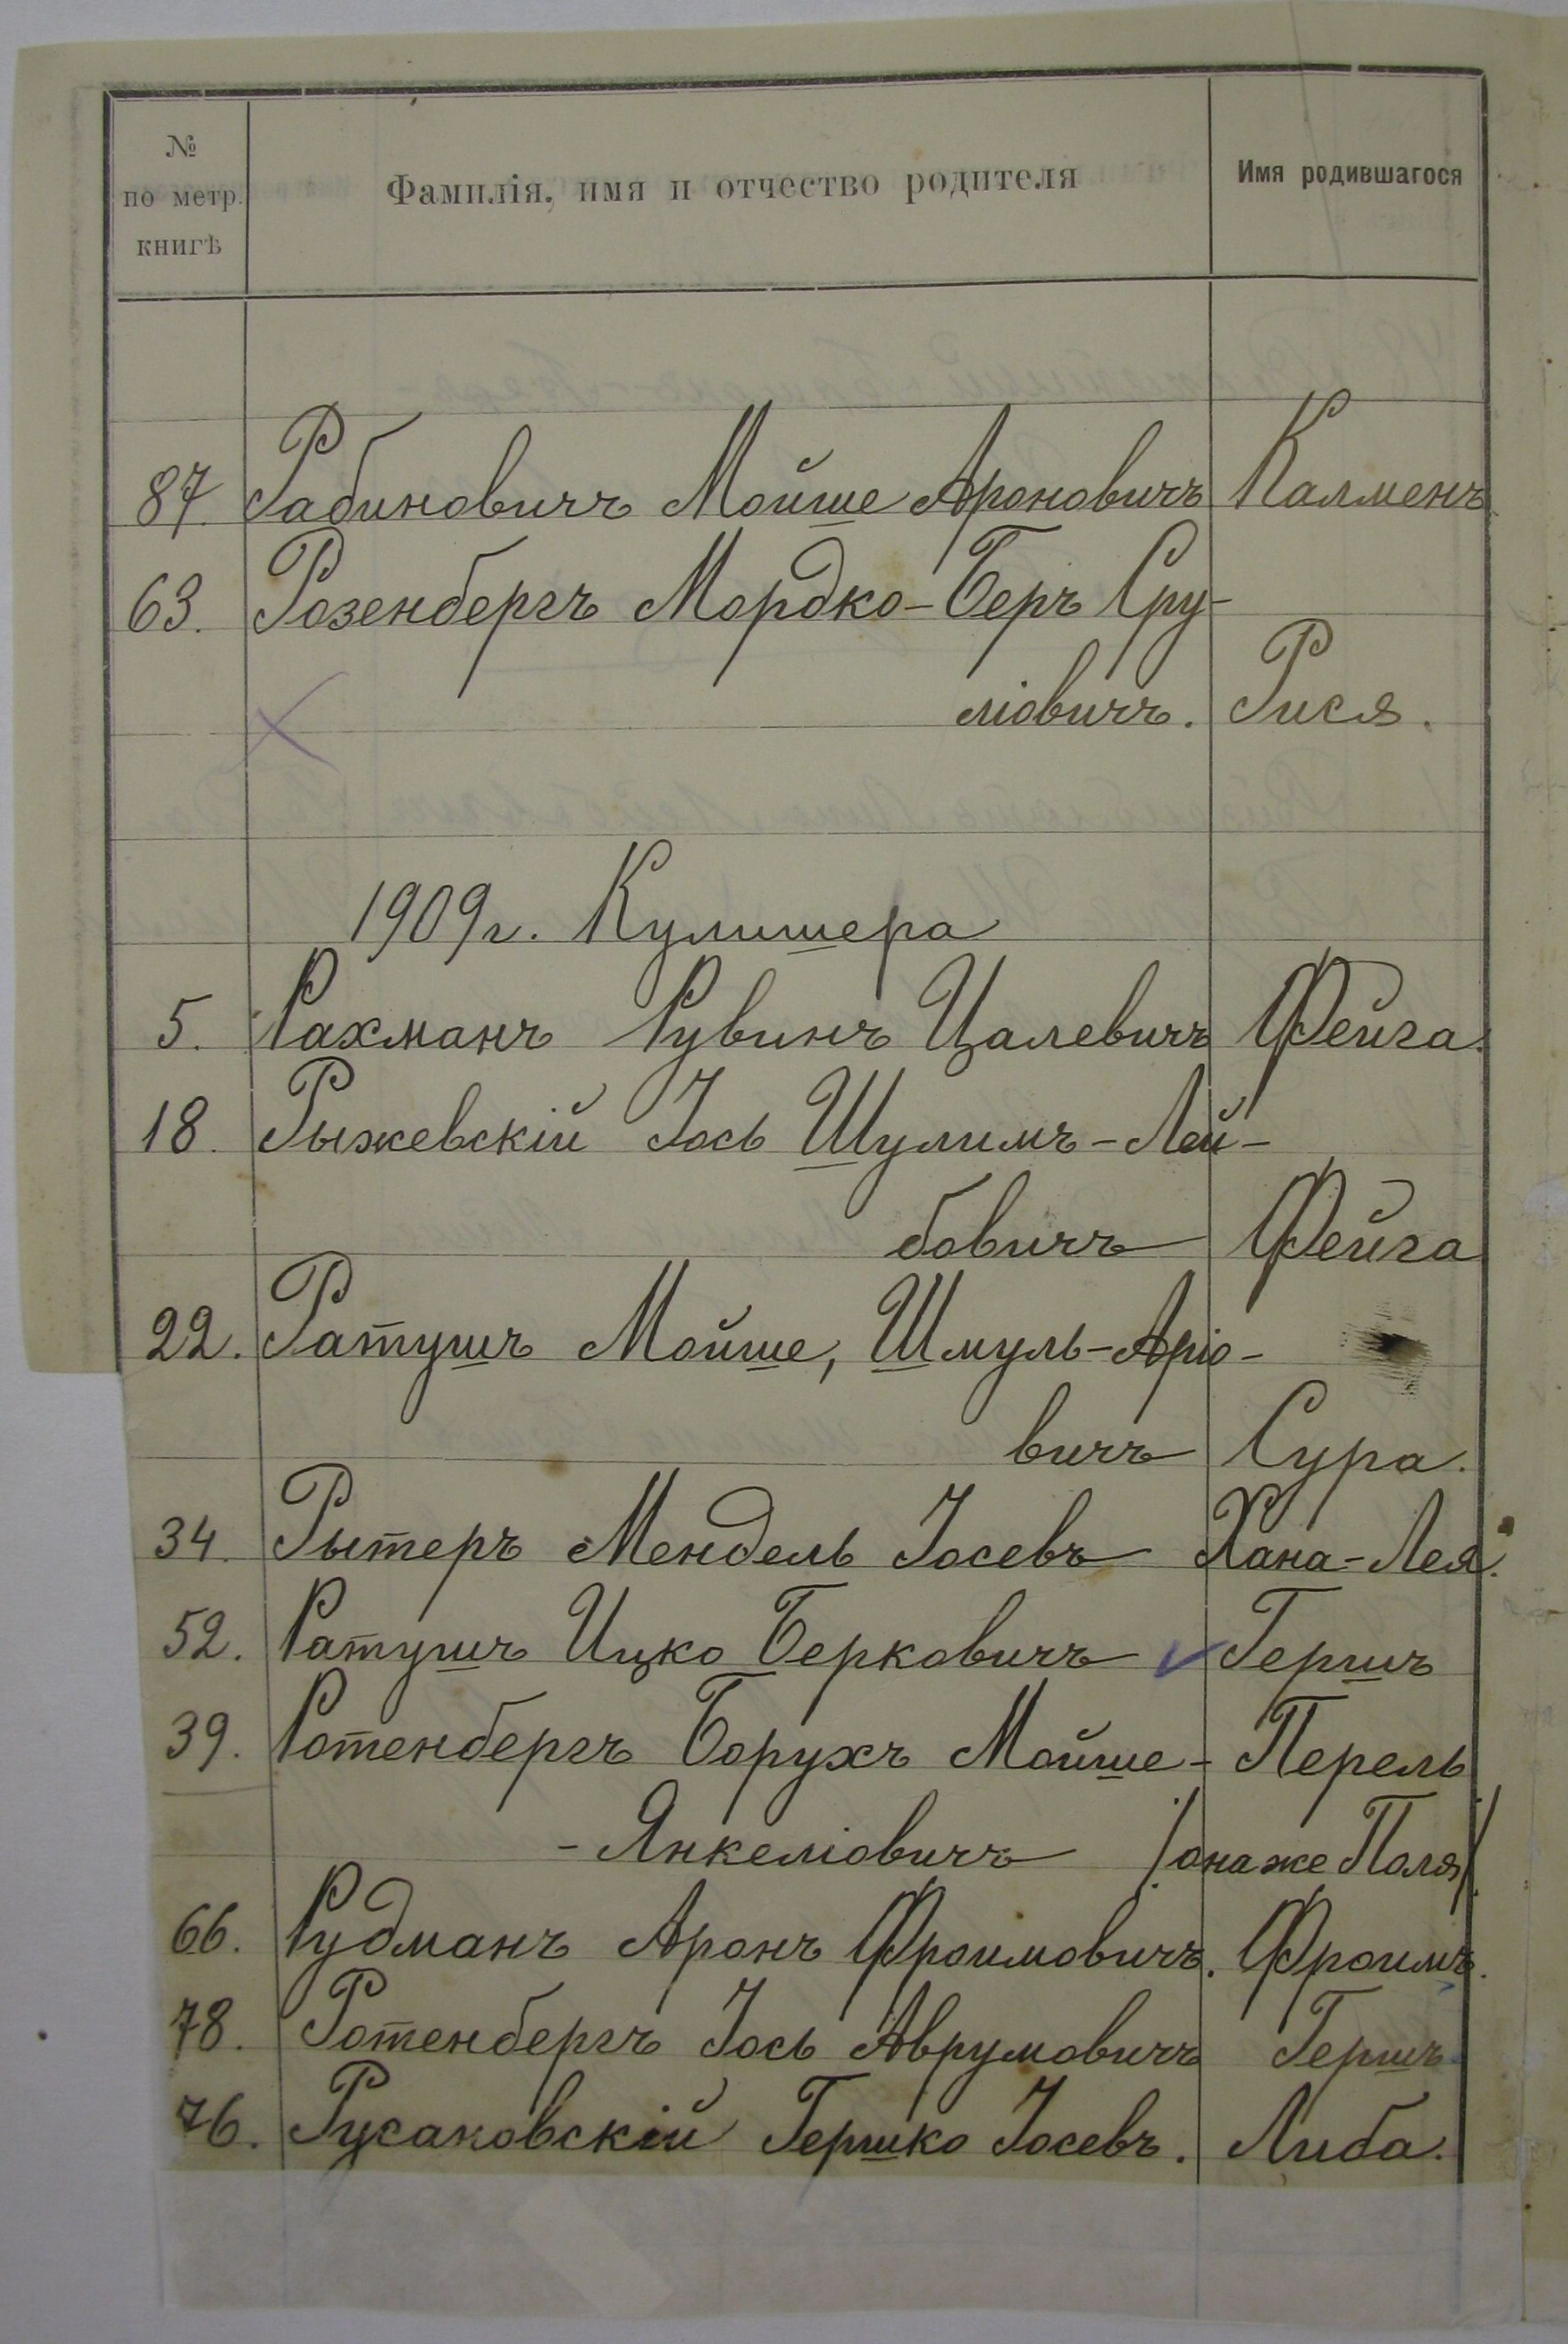 № по метр. книгѣ Фамилія, имя и отчество родителя Имя родившагося
87. Рабиновичъ Мойше Ароновичъ Калменъ
63. Розенбергъ Мордко-Беръ Сру-
ліовичъ. Рися.
1909 г. Кулишера
5. Рахманъ Рувинъ Цалевичъ Фейга.
18. Рыжевскій Іось Шулимъ-Лей-
бовичъ Фейга
22. Ратушъ Мойше, Шмуль-Аріо-
вичъ Сура.
34. Рытеръ Мендель Іосевъ Хана-Лея.
52. Ратушъ Ицко Берковичъ Гершъ
39. Ротенбергъ Борухъ Мойше- Перель
-Янкеліовичъ /она же Поля/
66. Рудманъ Аронъ Фроимовичъ. Фроимъ.
78. Ротенбергъ Іось Аврумовичъ Гершъ
76. Русаковскій Гершко Іосевъ. Либа.